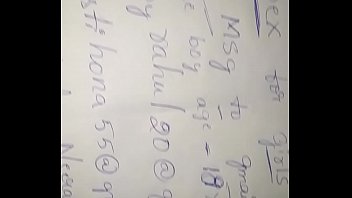 ex for girls
Msg to gmai
boy age = 18
y rahul20@g
hona55@g